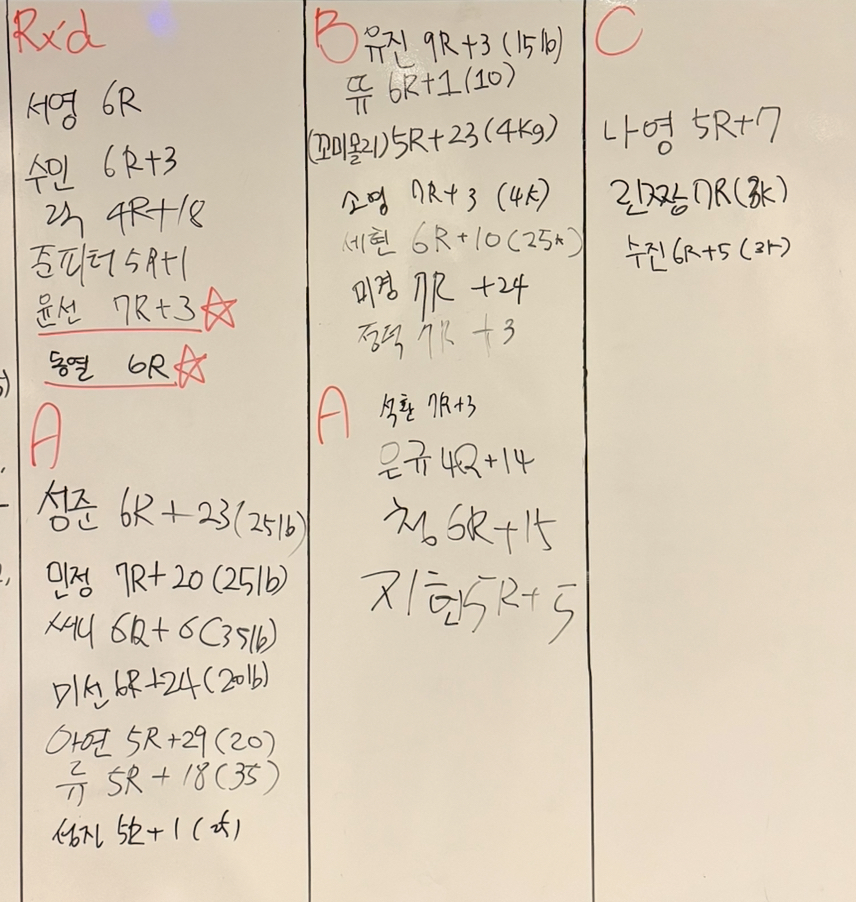 Rx'd
서영 6R
수인 6R+3
4R+18
준피터 5R+1
윤선 7R+3
동열 6R
A
성준 6R+23(25lb)
민정 7R+20(25lb)
써니 6R+6(35lb)
미선 6R+24(20lb)
아연 5R+29(20)
류 5R+18(35)
성지 5R+1
B
유진 9R+3(15lb)
뜌 6R+1(10)
(꼬미몰리)5R+23(4kg)
소영 7R+3 (4k)
세현 6R+10(25k)
미경 7R +24
정덕 7R +3
A
석환 7R+3
은규 4R+14
청 6R+15
지현 5R+5
C
나영 5R+7
린짱 7R(3k)
수진 6R+5